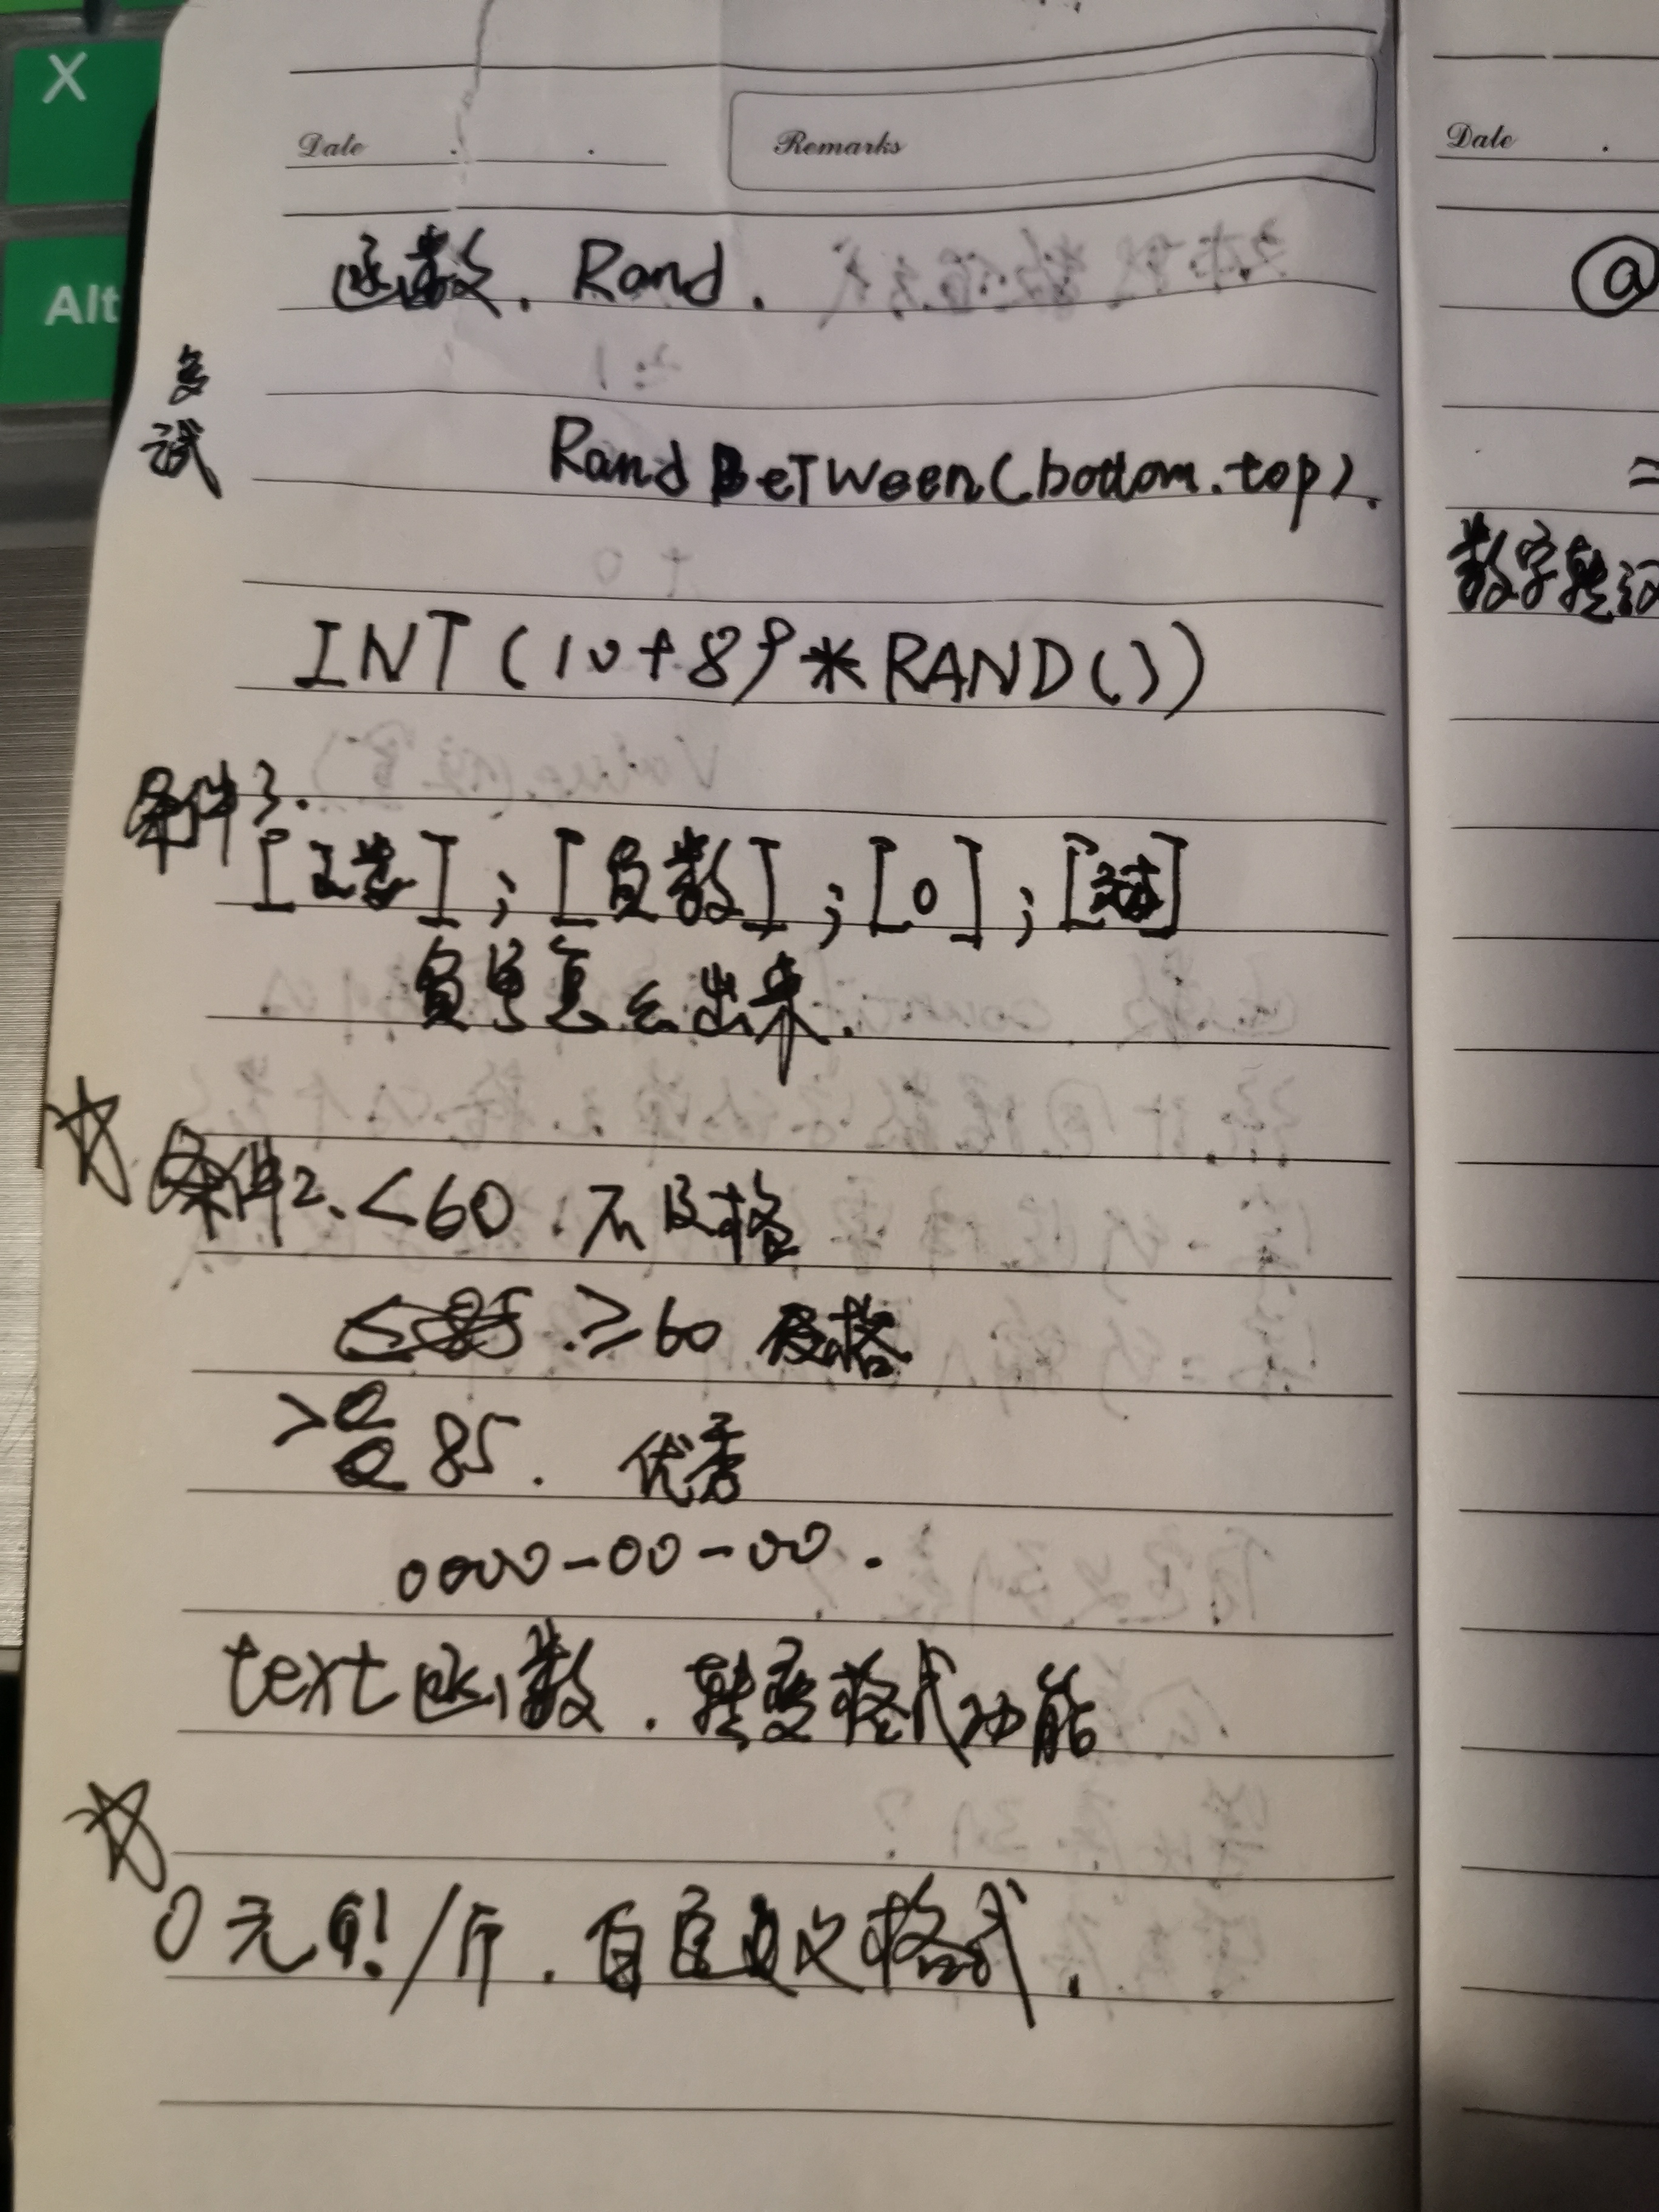 X
Alt
Date
Remarks
函数. Rand.
多试
RandBeTween(bottom.top).
INT(10+89*RAND())
条件3.
[正数];[负数];[0];[文本]
负号怎么出来.
条件2、<60.不及格
≥60 及格
> 85. 优秀
0000-00-00.
text函数.转变格式功能
0元!/斤.自定义格式.
Date
@
=
数字转